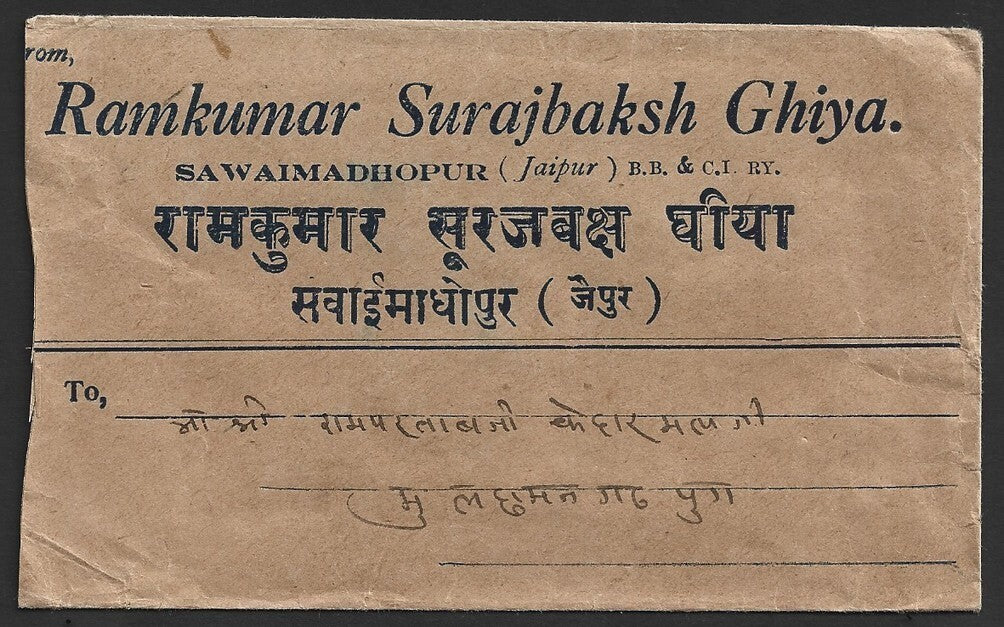 rom,
Ramkumar Surajbaksh Ghiya.
SAWAIMADHOPUR ( Jaipur ) B.B. & C.I. RY.
रामकुमार सूरजबक्ष घीया
सवाईमाधोपुर ( जैपुर )
To,
श्री श्री रामपरताबजी केदारमलजी
मु लछमनगढ